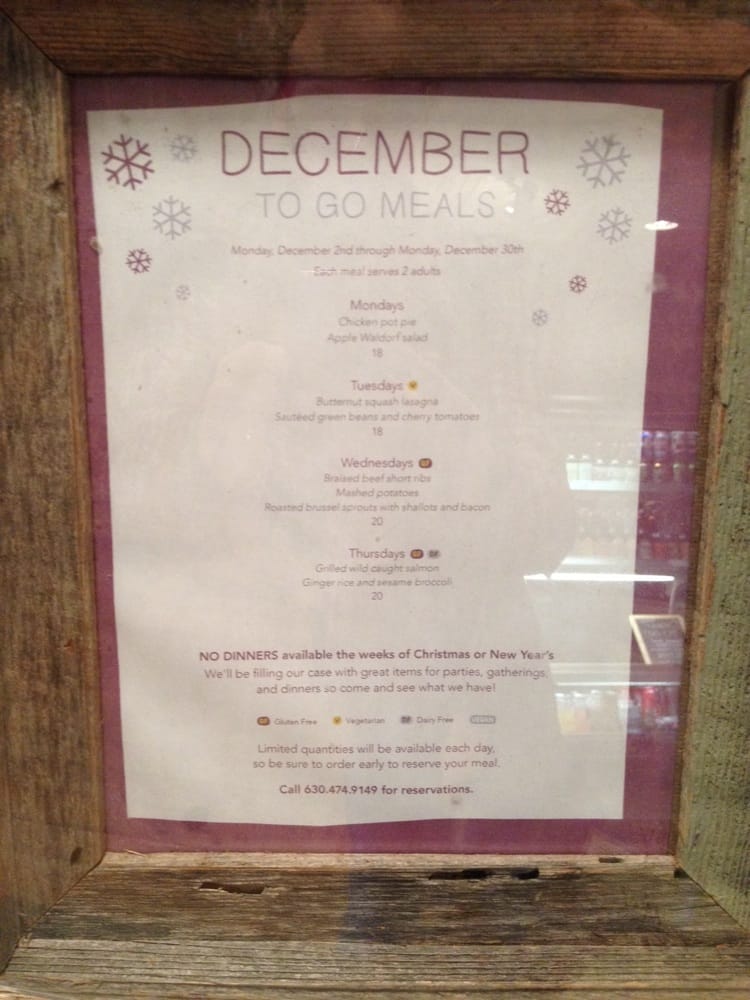 DECEMBER
TO GO MEALS
Monday, December 2nd through Monday, December 30th
Each meal serves 2 adults
Mondays
Chicken pot pie
Apple Waldorf salad
18
Tuesdays V
Butternut squash lasagna
Sautéed green beans and cherry tomatoes
18
Wednesdays GF
Braised beef short ribs
Mashed potatoes
Roasted brussel sprouts with shallots and bacon
20
Thursdays GF DF
Grilled wild caught salmon
Ginger rice and sesame broccoli
20
NO DINNERS available the weeks of Christmas or New Year's
We'll be filling our case with great items for parties, gatherings,
and dinners so come and see what we have!
GF Gluten Free V Vegetarian DF Dairy Free VEGAN
Limited quantities will be available each day,
so be sure to order early to reserve your meal.
Call 630.474.9149 for reservations.